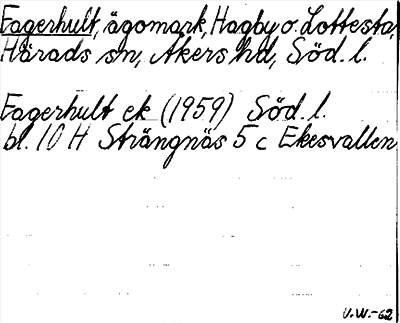 Eagerhult, ägomark, Hagby o. Lottesta,
Härads sn, Åkers hd, Söd. l.
Eagerhult ek (1959) Söd. l.
bl. 10 H Strängnäs 5 c Ekesvallen
V.W.-62